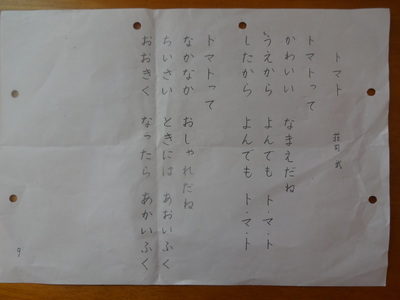 トマト
荘司 武
トマトって
かわいい なまえだね
うえから よんでも ト・マ・ト
したから よんでも ト・マ・ト
トマトって
なかなか おしゃれだね
ちいさい ときには あおいふく
おおきく なったら あかいふく
9